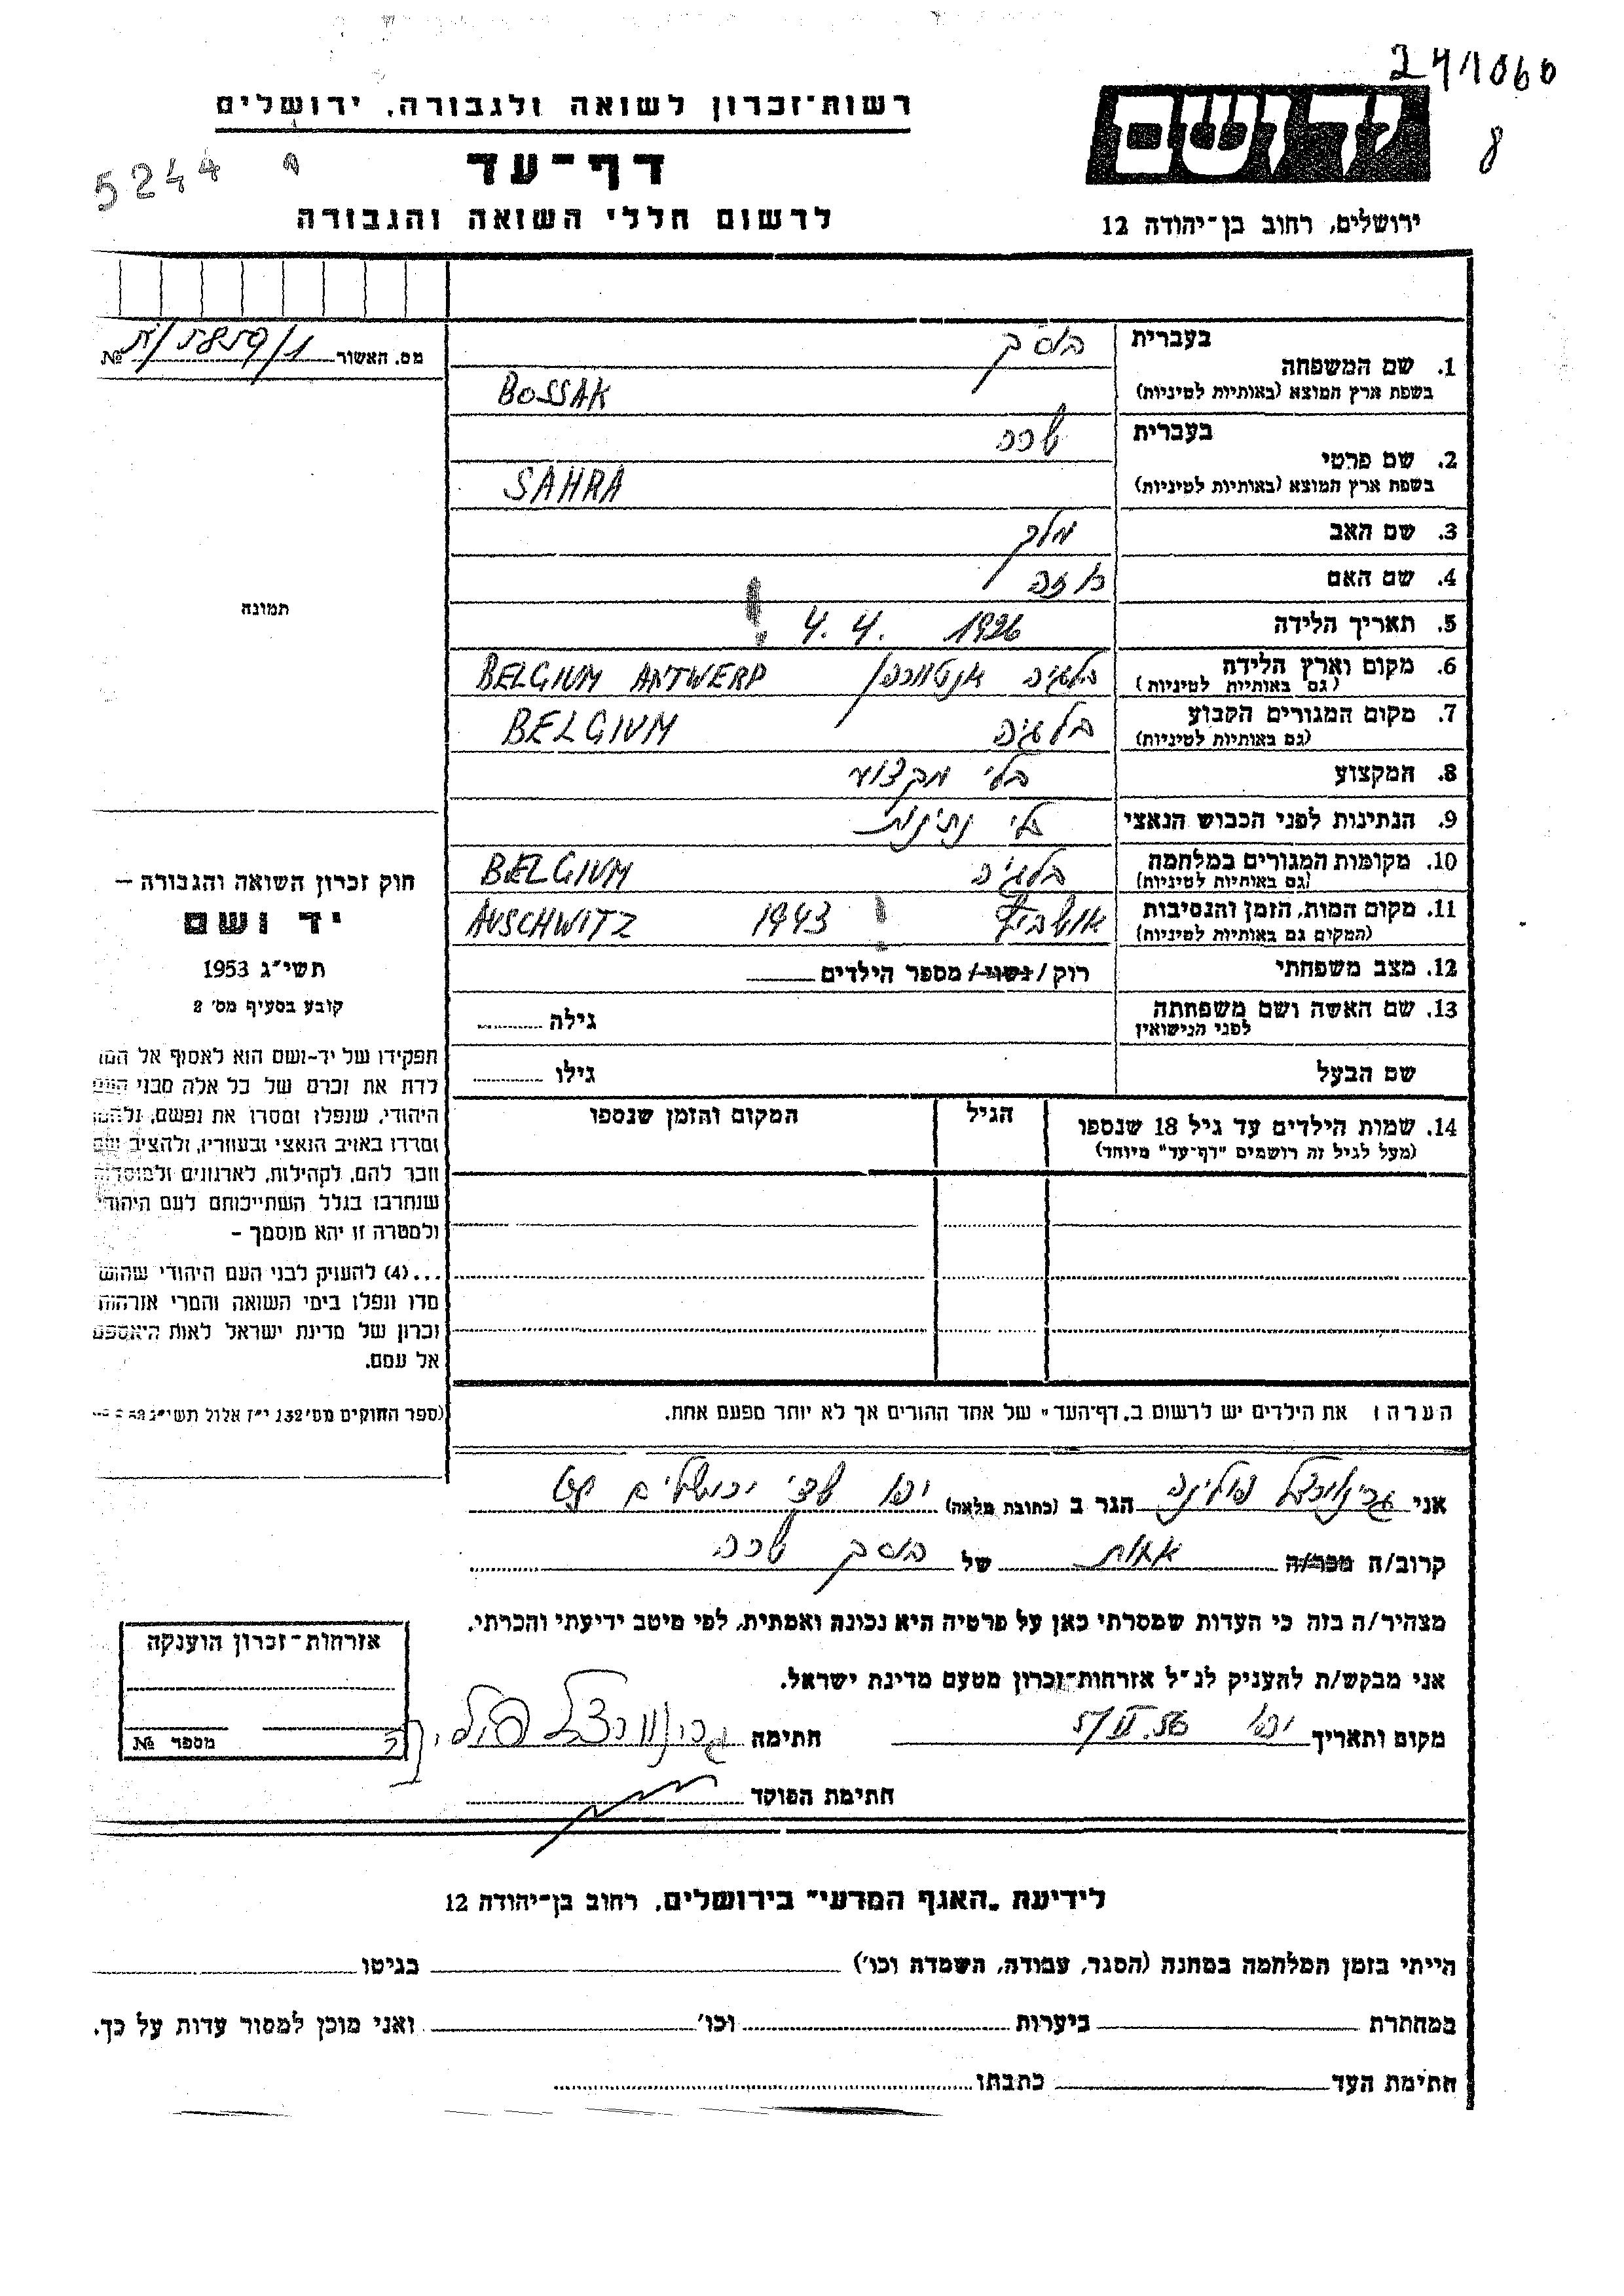 241060
8
יד ושם
ירושלים, רחוב בן-יהודה 12
רשות-זכרון לשואה ולגבורה, ירושלים
דף-עד
לרשום חללי השואה והגבורה
5244
מס. האשור №
1. שם המשפחה בעברית בוסק
בשפת ארץ המוצא (באותיות לטיניות) BOSSAK
2. שם פרטי בעברית שרה
בשפת ארץ המוצא (באותיות לטיניות) SAHRA
3. שם האב מלך
4. שם האם
5. תאריך הלידה 4. 4. 1926
6. מקום וארץ הלידה (גם באותיות לטיניות) בלגיה אנטוורפן BELGIUM ANTWERP
7. מקום המגורים הקבוע (גם באותיות לטיניות) בלגיה BELGIUM
8. המקצוע בלי מקצוע
9. הנתינות לפני הכבוש הנאצי בלי נתינות
10. מקומות המגורים במלחמה (גם באותיות לטיניות) בלגיה BELGIUM
11. מקום המות, הזמן והנסיבות (המקום גם באותיות לטיניות) אושביץ 1943 AUSCHWITZ
12. מצב משפחתי רוק / נשוי / מספר הילדים
13. שם האשה ושם משפחתה לפני הנישואין גילה
שם הבעל גילו
14. שמות הילדים עד גיל 18 שנספו הגיל המקום והזמן שנספו
(מעל לגיל זה רושמים "דף-עד" מיוחד)
הערה: את הילדים יש לרשום ב"דף-העד" של אחד ההורים אך לא יותר מפעם אחת.
תמונה
חוק זכרון השואה והגבורה —
יד ושם
תשי"ג 1953
קובע בסעיף מס' 2
תפקידו של יד-ושם הוא לאסוף אל
לדת את זכרם של כל אלה מבני העם
היהודי, שנפלו ומסרו את נפשם, נלחמו
ומרדו באויב הנאצי ובעוזריו, ולהציב שם
וזכר להם, לקהילות, לארגונים ולמוסדות
שנחרבו בגלל השתייכותם לעם היהודי
ולמטרה זו יהא מוסמך –
...(4) להעניק לבני העם היהודי שהוש
מדו ונפלו בימי השואה והמרי אזרחות
זכרון של מדינת ישראל לאות היאספם
אל עמם.
(ספר החוקים מס' 132 י"ז אלול תשי"ג
אני גרינוורצל פולינה הגר ב (כתובת מלאה) יפו שד' ירושלים
קרוב/ה מכר/ה אחות של בוסק שרה
מצהיר/ה בזה כי העדות שמסרתי כאן על פרטיה היא נכונה ואמתית, לפי מיטב ידיעתי והכרתי.
אני מבקש/ת להעניק לנ"ל אזרחות-זכרון מטעם מדינת ישראל.
מקום ותאריך יפו חתימה גרינוורצל פולינה
חתימת הפוקד
אזרחות-זכרון הוענקה
מספר №
לידיעת "האגף המדעי" בירושלים, רחוב בן-יהודה 12
הייתי בזמן המלחמה במחנה (הסגר, עבודה, השמדה וכו') בגיטו
במחתרת ביערות וכו' ואני מוכן למסור עדות על כך.
חתימת העד כתבתו